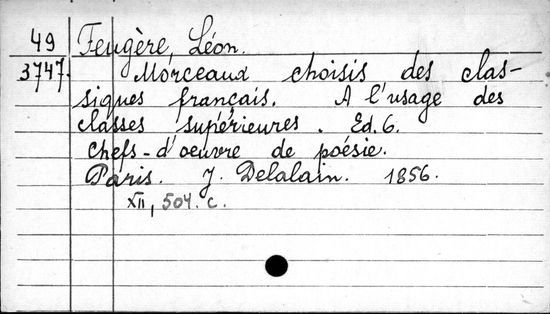 49 Feugère, Léon.
3747. Morceaux choisis des clas-
siques français. A l'usage des
classes supérieures. Ed. 6.
Chefs-d'oeuvre de poésie.
Paris. J. Delalain. 1856.
XII, 504. c.